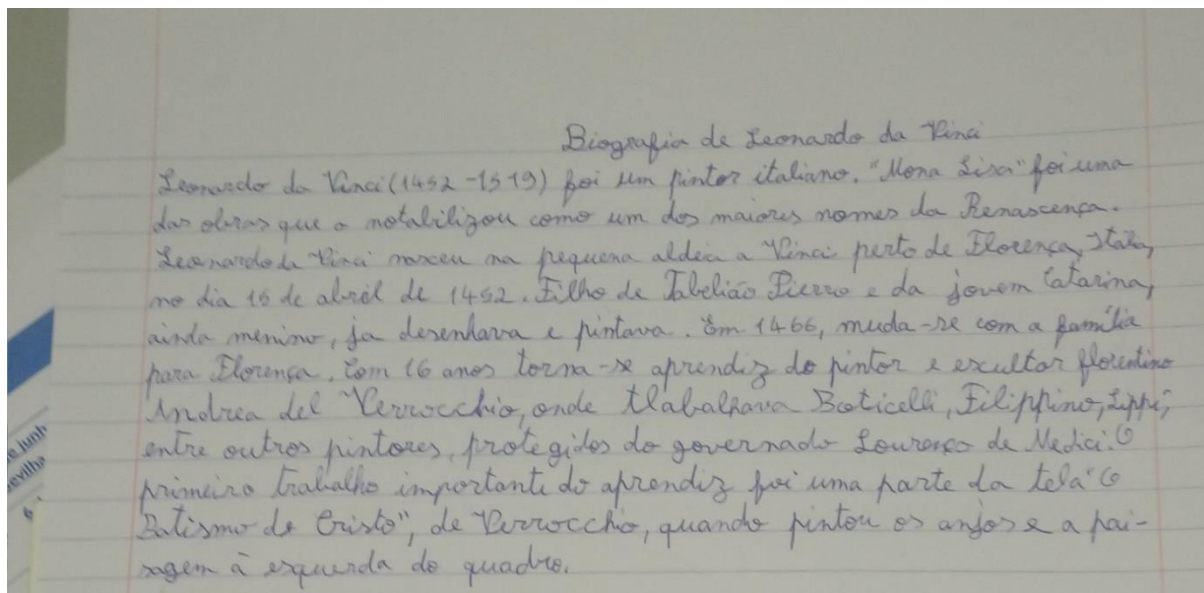 Biografia de Leonardo da Vinci
Leonardo da Vinci (1452 - 1519) foi um pintor italiano. "Mona Lisa" foi uma
das obras que o notabilizou como um dos maiores nomes da Renascença.
Leonardo da Vinci nasceu na pequena aldeia a Vinci perto de Florença, Itália,
no dia 15 de abril de 1452. Filho de Tabelião Pierro e da jovem Catarina,
ainda menino, ja desenhava e pintava. Em 1466, muda-se com a família
para Florença. Com 16 anos torna-se aprendiz do pintor e escultor florentino
Andrea del Verrocchio, onde tlabalhava Boticelli, Filippino, Lippi,
entre outros pintores, protegidos do governado Lourenço de Medici. O
primeiro trabalho importante do aprendiz foi uma parte da tela "O
Batismo de Cristo", de Verrocchio, quando pintou os anjos e a pai-
sagem à esquerda do quadro.